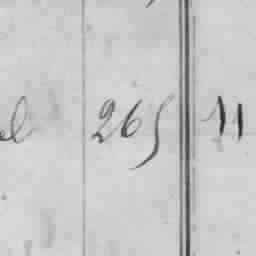 265 11